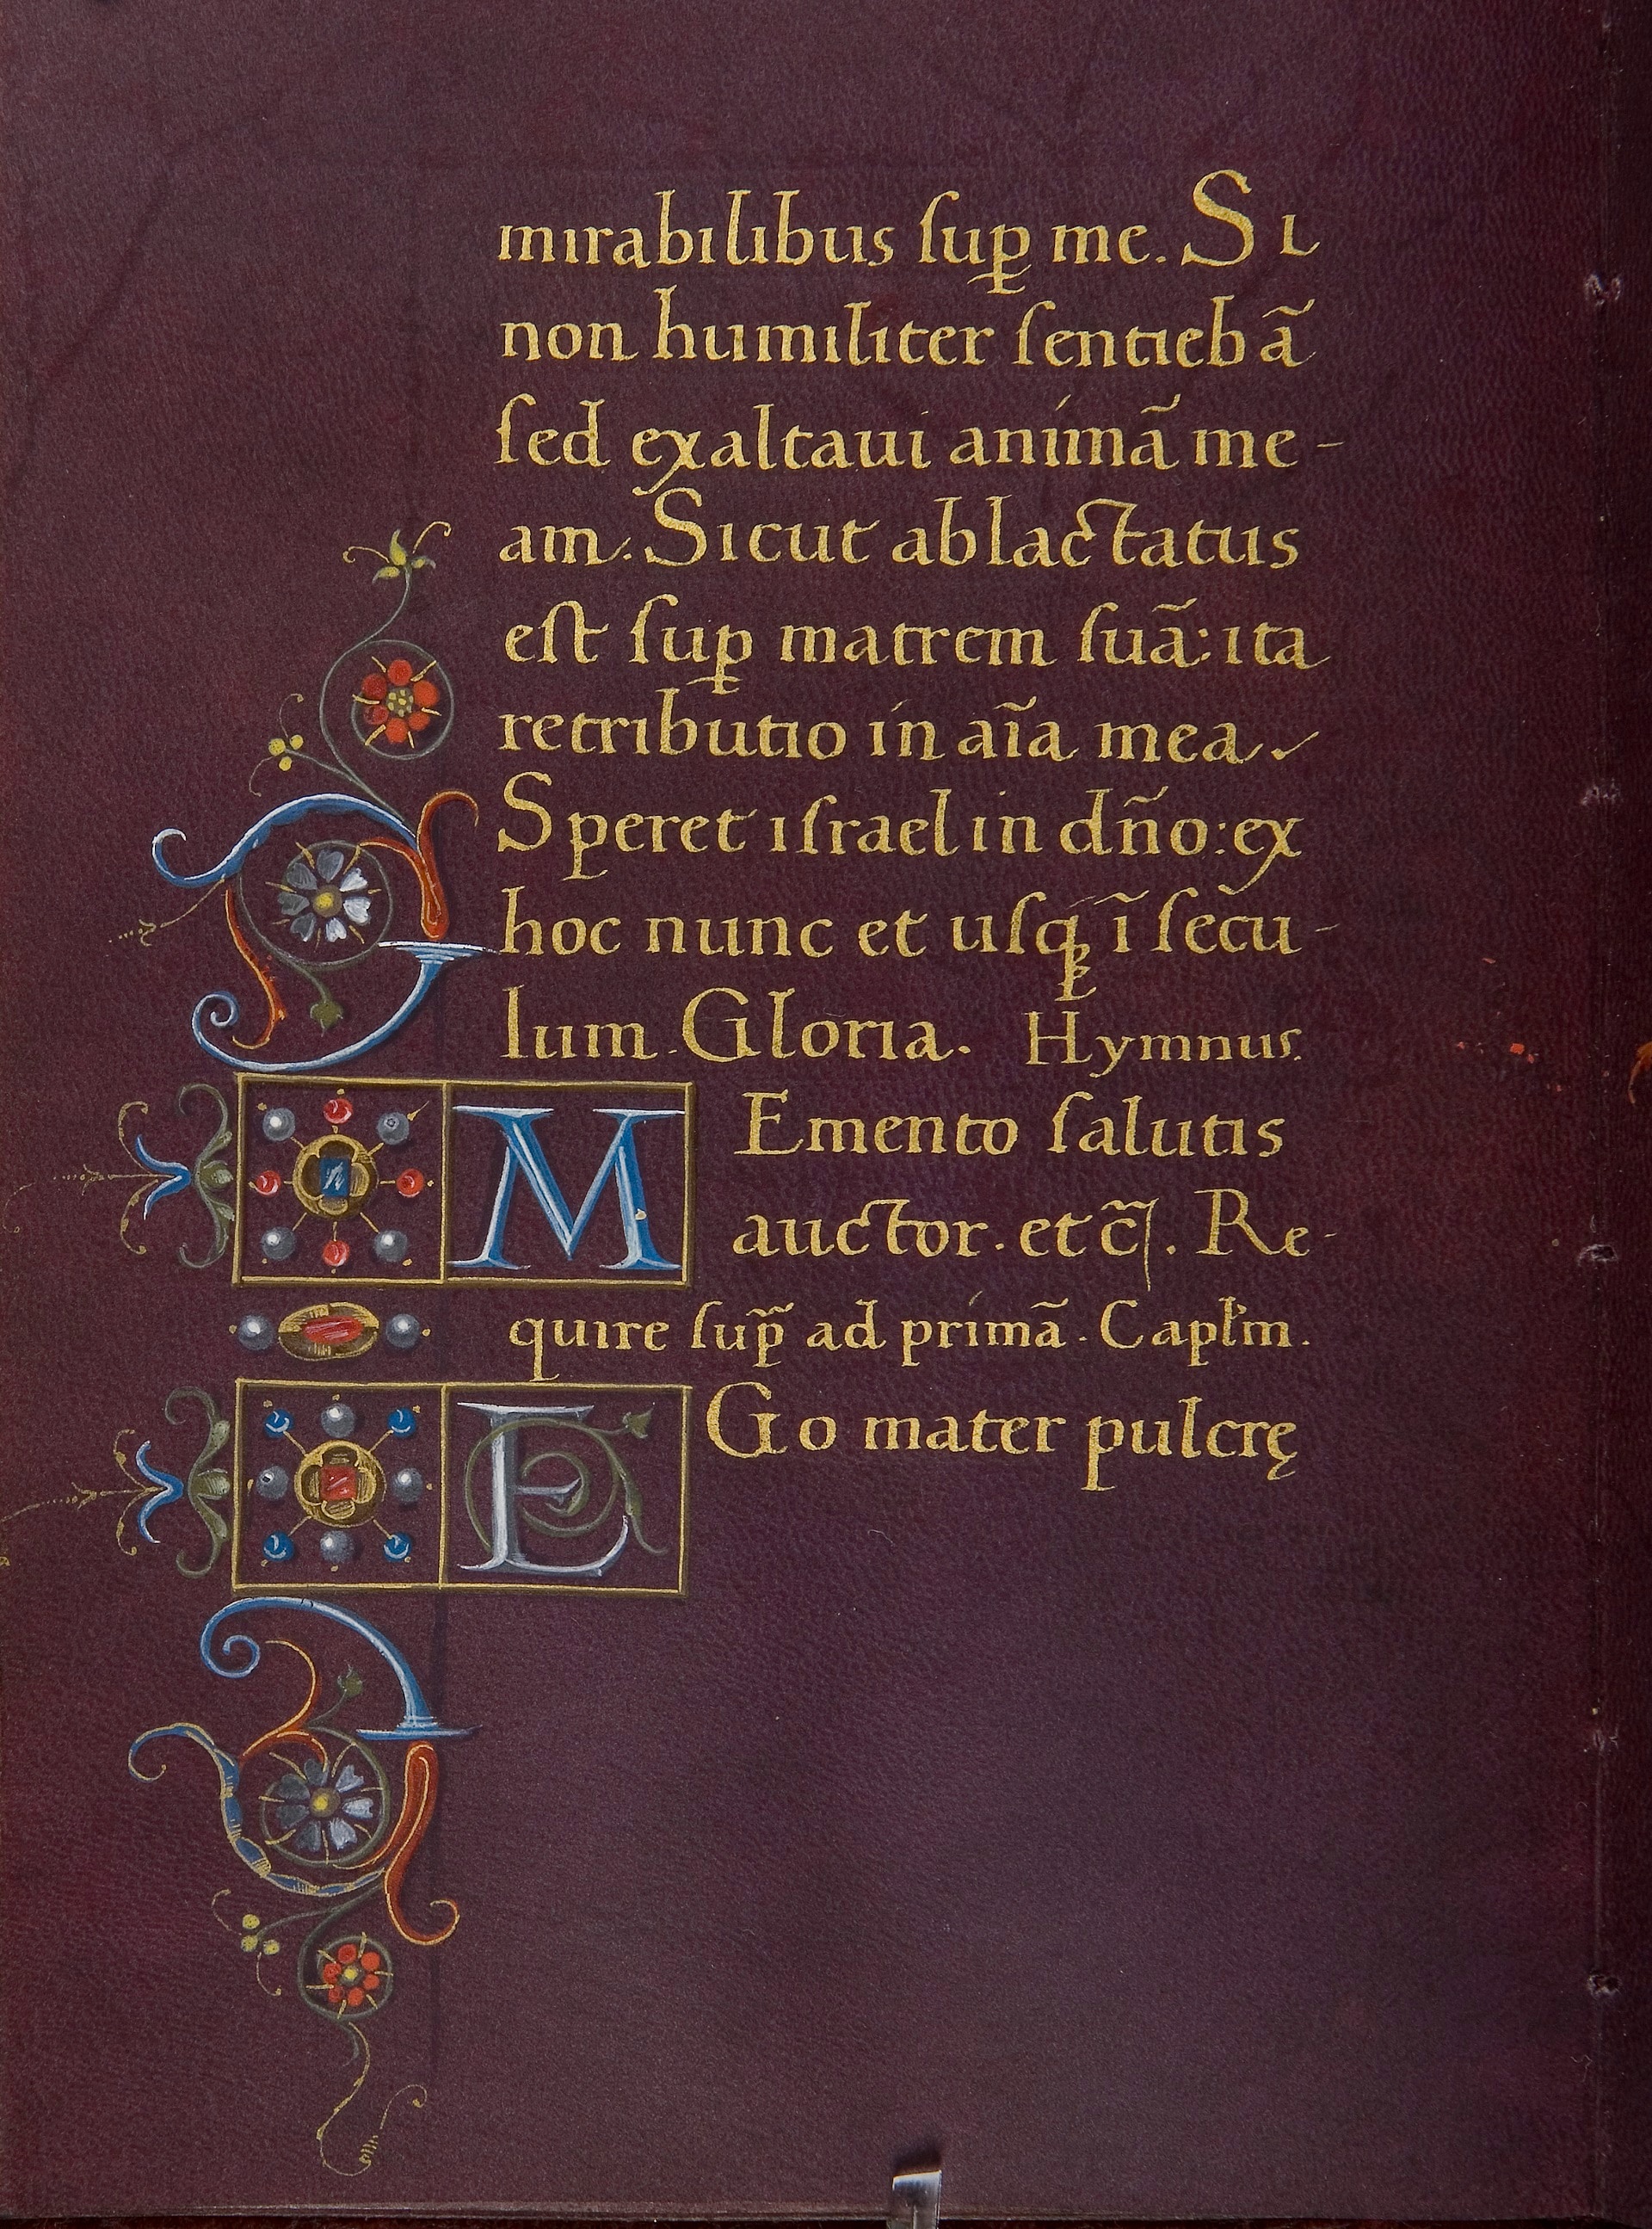 mirabilibus ſuꝑ me. Si
non humiliter ſentiebã
ſed exaltaui animã me-
am. Sicut ablactatus
eſt ſuꝑ matrem ſuã: ita
retributio in aĩa mea
Speret iſrael in dño: ex
hoc nunc et uſqꝫ ĩ ſecu-
lum. Gloria. Hymnus.
MEmento ſalutis
auctor. et c̃. Re-
quire ſup̃ ad primã. Capl̃m.
EGo mater pulcrę